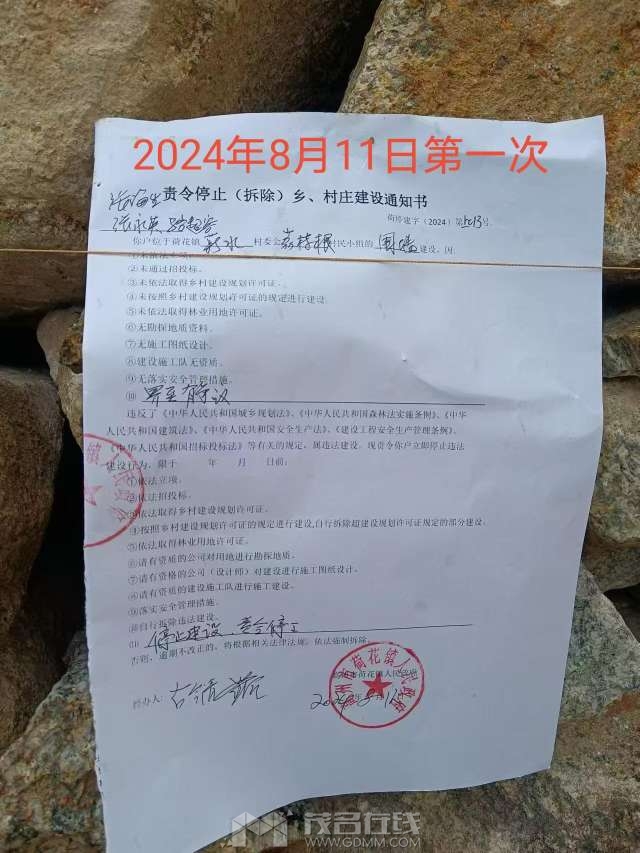 2024年8月11日第一次
责令停止（拆除）乡、村庄建设通知书
荷停建字（2024）第 号
你户位于荷花镇 村委会 村民小组的围墙建设，因
①未依法立项。
②未通过招投标。
③未依法取得乡村建设规划许可证。
④未按照乡村建设规划许可证的规定进行建设。
⑤未依法取得林业用地许可证。
⑥无勘探地质资料。
⑦无施工图纸设计。
⑧建设施工队无资质。
⑨无落实安全管理措施。
⑩
违反了《中华人民共和国城乡规划法》、《中华人民共和国森林法实施条例》、《中华
人民共和国建筑法》、《中华人民共和国安全生产法》、《建设工程安全生产管理条例》、
《中华人民共和国招标投标法》等有关的规定，属违法建设。现责令你户立即停止违法
建设行为，限于 年 月 日前：
①依法立项。
②依法招投标。
③依法取得乡村建设规划许可证。
④按照乡村建设规划许可证的规定进行建设,自行拆除超建设规划许可证规定的部分建设。
⑤依法取得林业用地许可证。
⑥请有资质的公司对用地进行勘探地质。
⑦请有资格的公司（设计师）对建设进行施工图纸设计。
⑧请有资质的建设施工队进行施工建设。
⑨落实安全管理措施。
⑩自行拆除违法建设。
⑪停止建设，责令停工
否则，逾期不改正的，将根据相关法律法规，依法强制拆除。
市荷花镇人民政府
经办人：
2024年8月11日
茂名在线
WWW.GDMM.COM